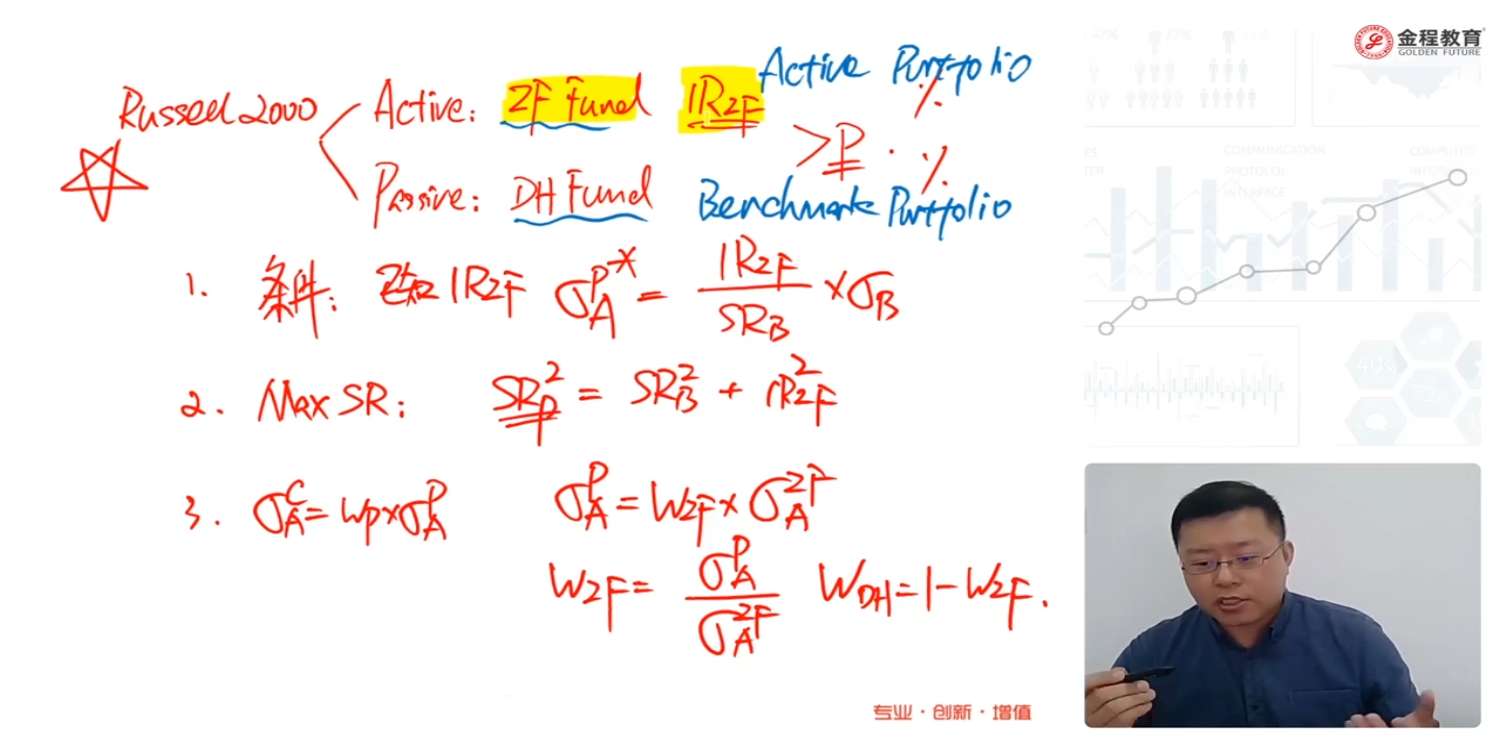 金程教育
GOLDEN FUTURE
Active Portfolio
%
Russell 2000
Active: ZF Fund IR ZF
> P. %
Passive: DH Fund
Benchmark Portfolio
1. 条件: 已知 IR ZF σ_A^P* = IR ZF / SR_B × σ_B
2. Max SR: SR_P^2 = SR_B^2 + IR_ZF^2
3. σ_A^C = Wp × σ_A^P σ_A^P = W ZF × σ_A^ZF
W ZF = σ_A^P / σ_A^ZF W DH = 1 - W ZF.
专业·创新·增值